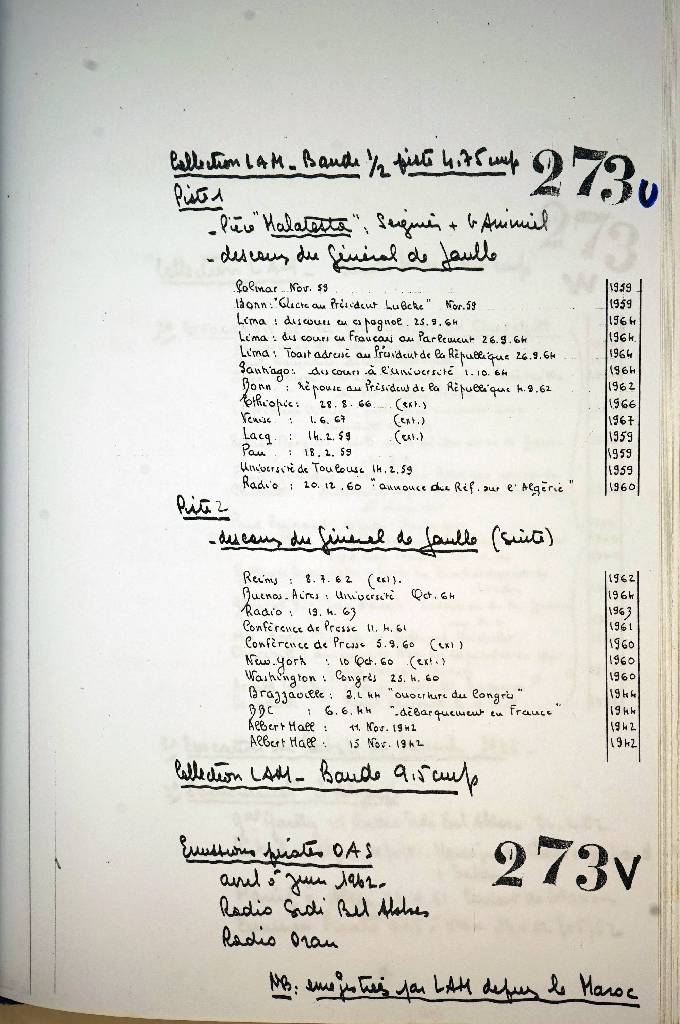 Collection LAM - Bande 1/2 piste 4.75 cm/s 273 U
Piste 1
- Pièce "Malatesta": +
- discours du Général de Gaulle
Colmar Nov. 59 1959
Bonn: "Président Lubcke" Nov. 59 1959
Lima: discours en espagnol 25.9.64 1964
Lima: discours en Français au Parlement 26.9.64 1964
Lima: Toast adressé au Président de la République 26.9.64 1964
Santiago: discours à l'université 1.10.64 1964
Bonn: réponse au Président de la République 4.9.62 1962
Ethiopie: 28.8.66 (ext.) 1966
Venise: 1.6.67 (ext.) 1967
Lacq: 14.2.59 (ext.) 1959
Pau: 18.2.59 1959
Université de Toulouse 14.2.59 1959
Radio: 20.12.60 "annonce du Réf. sur l'Algérie" 1960
Piste 2
- discours du Général de Gaulle (Suite)
Reims: 8.7.62 (ext). 1962
Buenos-Aires: Université Oct. 64 1964
Radio: 19.4.63 1963
Conférence de Presse 11.4.61 1961
Conférence de Presse 5.9.60 (ext) 1960
New-York: 10 Oct. 60 (ext.) 1960
Washington: Congrès 25.4.60 1960
Brazzaville: "ouverture du Congrès" 1944
BBC: 6.6.44 "débarquement en France" 1944
Albert Hall: 11 Nov. 1942 1942
Albert Hall: 15 Nov. 1942 1942
Collection LAM - Bande 9.5 cm/s
Emissions pirates OAS 273 V
avril à Juin 1962-
Radio Sidi Bel Abbes
Radio Oran
NB: enregistrées par LAM depuis le Maroc